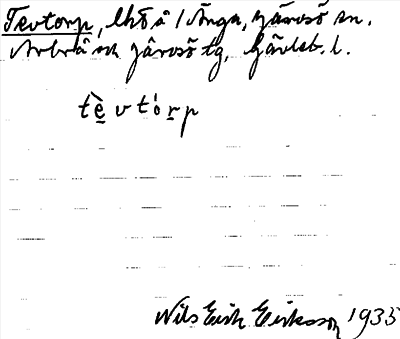 Tevtorp, lhd å 1 Änga, Järvsö sn.
Arbrå ock Järvsö tg, Gävleb. l.
tèvtórp
Nils Erik Eriksson 1935